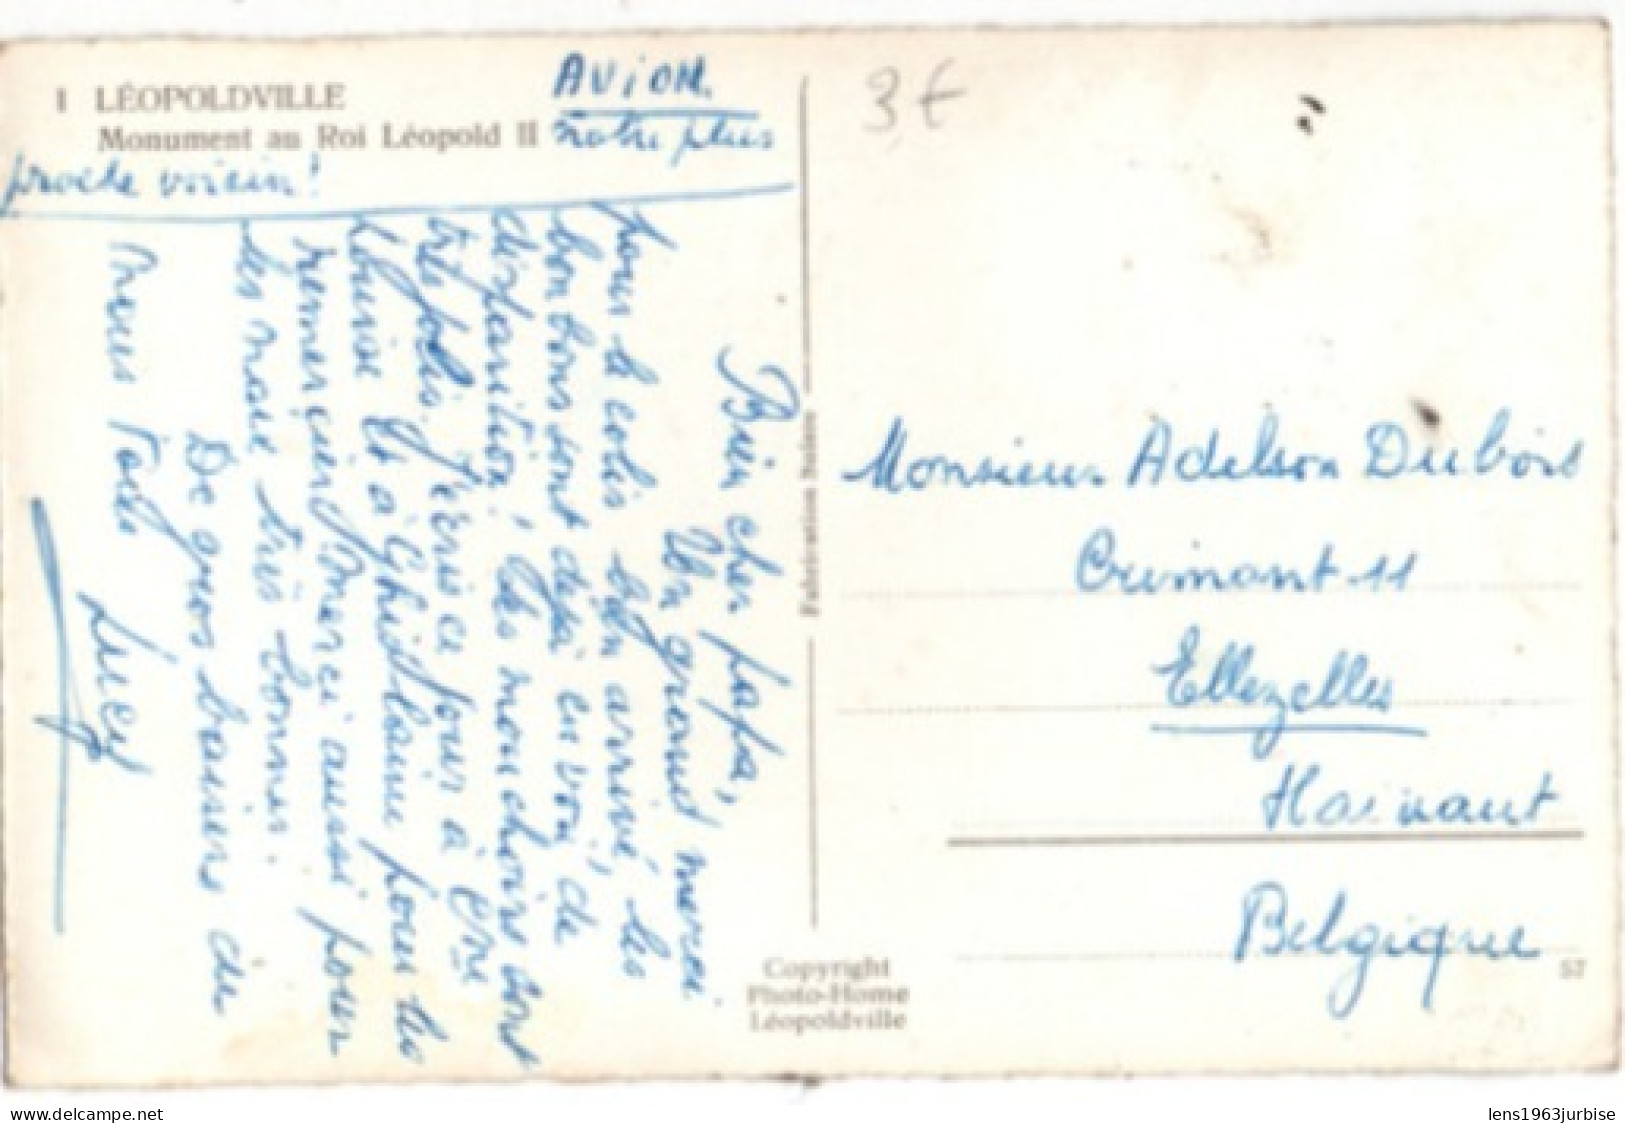 1 LÉOPOLDVILLE
Monument au Roi Léopold II
AVION.
notre plus
proche voisin!
Bien cher papa,
Un grand merci
pour le colis bien arrivé, les
bonbons sont déjà en voie de
disparition! les mouchoirs sont
très jolis. J'écris ce jour à
Louise et à Ghislaine pour les
remercier. Merci aussi pour
les mose très bonnes.
De gros baisers de
nous tous
Lucy
3 €
Monsieur Adelson Dubois
Crimont 11
Ellezelles
Hainaut
Belgique
57
Fabrication Suisse
Copyright
Photo-Home
Léopoldville
www.delcampe.net
lens1963jurbise